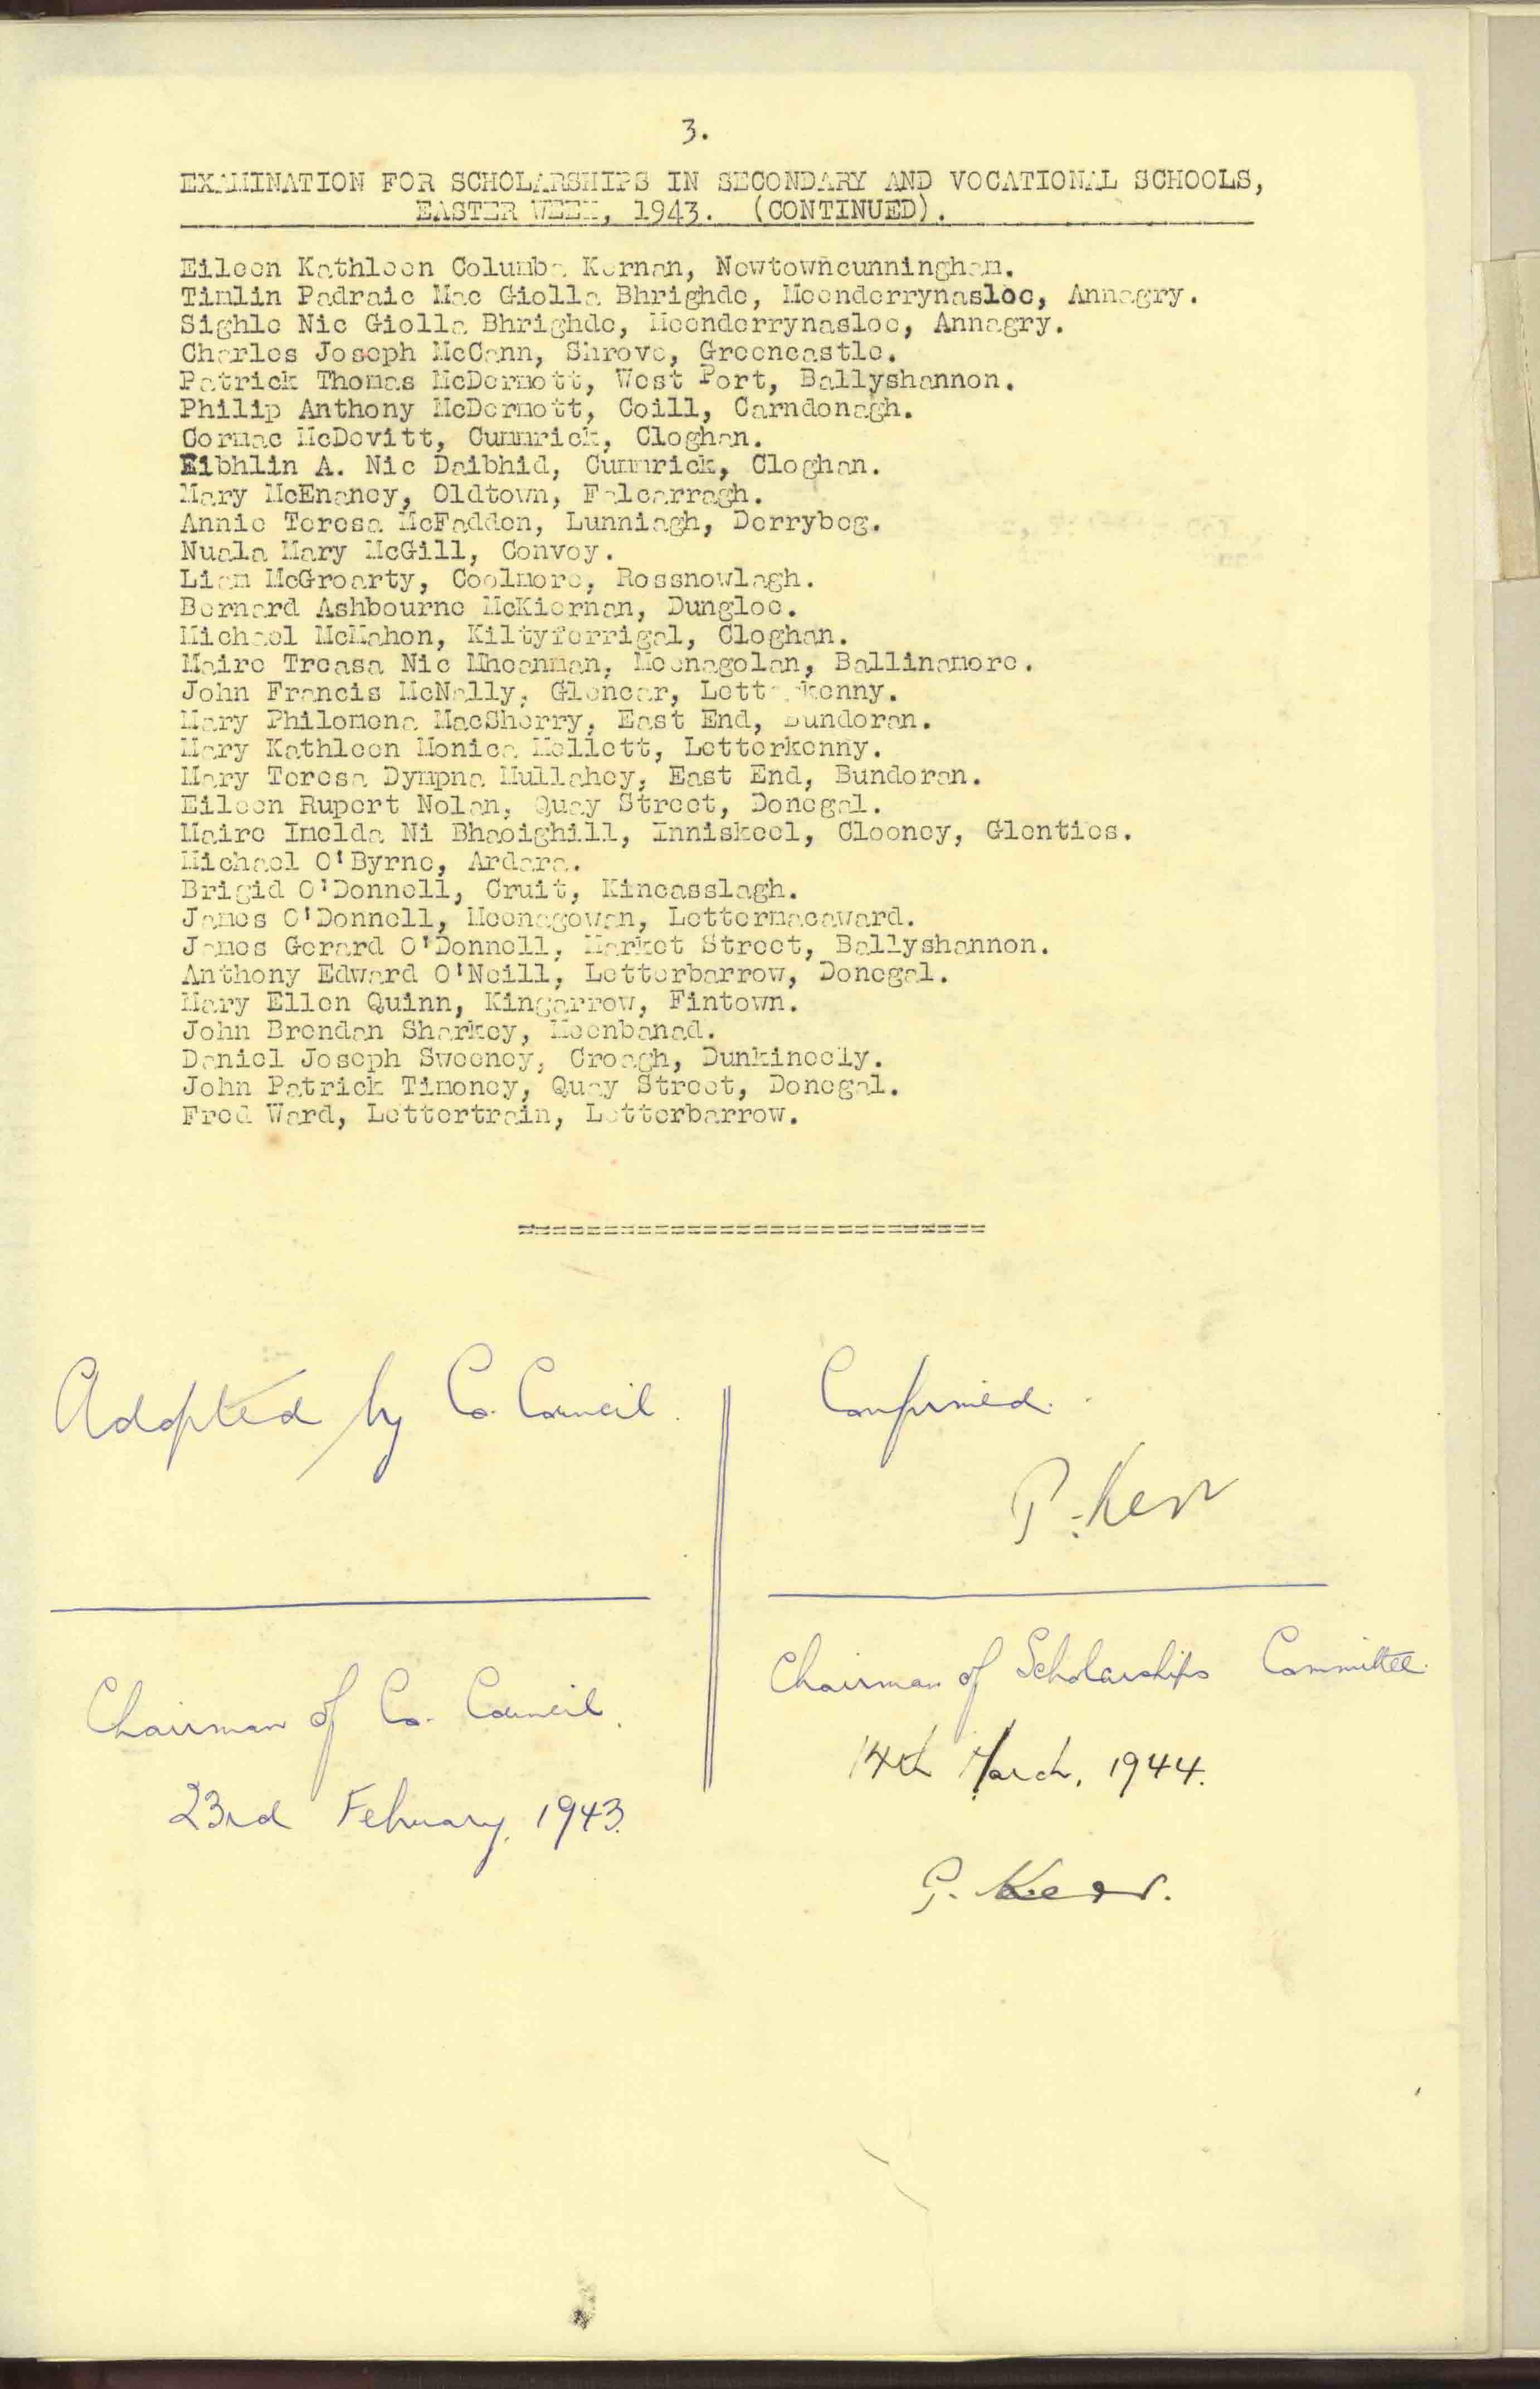 3.
EXAMINATION FOR SCHOLARSHIPS IN SECONDARY AND VOCATIONAL SCHOOLS,
EASTER WEEK, 1943. (CONTINUED).
Eileen Kathleen Columba Kernan, Newtowncunningham.
Timlin Padraic Mac Giolla Bhrighde, Meenderrynasloe, Annagry.
Sighle Nic Giolla Bhrighde, Meenderrynasloe, Annagry.
Charles Joseph McCann, Shrove, Greencastle.
Patrick Thomas McDermott, West Port, Ballyshannon.
Philip Anthony McDermott, Coill, Carndonagh.
Cormac McDevitt, Cummrick, Cloghan.
Eibhlin A. Nic Daibhid, Cummrick, Cloghan.
Mary McEnaney, Oldtown, Falcarragh.
Annie Teresa McFadden, Lunniagh, Derrybeg.
Nuala Mary McGill, Convoy.
Liam McGroarty, Coolmore, Rossnowlagh.
Bernard Ashbourne McKiernan, Dungloe.
Michael McMahon, Kiltyferrigal, Cloghan.
Maire Treasa Nic Mheanman, Meenagolan, Ballinamore.
John Francis McNelly, Glencar, Letterkenny.
Mary Philomena MacSherry, East End, Bundoran.
Mary Kathleen Monica Mellett, Letterkenny.
Mary Teresa Dympna Mullahey, East End, Bundoran.
Eileen Rupert Nolan, Quay Street, Donegal.
Maire Imelda Ni Bhaoighill, Inniskeel, Clooney, Glenties.
Michael O'Byrne, Ardara.
Brigid O'Donnell, Cruit, Kincasslagh.
James O'Donnell, Meenagowan, Lettermacaward.
James Gerard O'Donnell, Market Street, Ballyshannon.
Anthony Edward O'Neill, Letterbarrow, Donegal.
Mary Ellen Quinn, Kingarrow, Fintown.
John Brendan Sharkey, Meenbanad.
Daniel Joseph Sweeney, Croagh, Dunkineely.
John Patrick Timoney, Quay Street, Donegal.
Fred Ward, Lettertrain, Letterbarrow.
============================
Adopted by Co. Council.
Chairman of Co. Council.
23rd February, 1943.
Confirmed.
P. Kerr
Chairman of Scholarships Committee.
14th March, 1944.
P. Kerr.